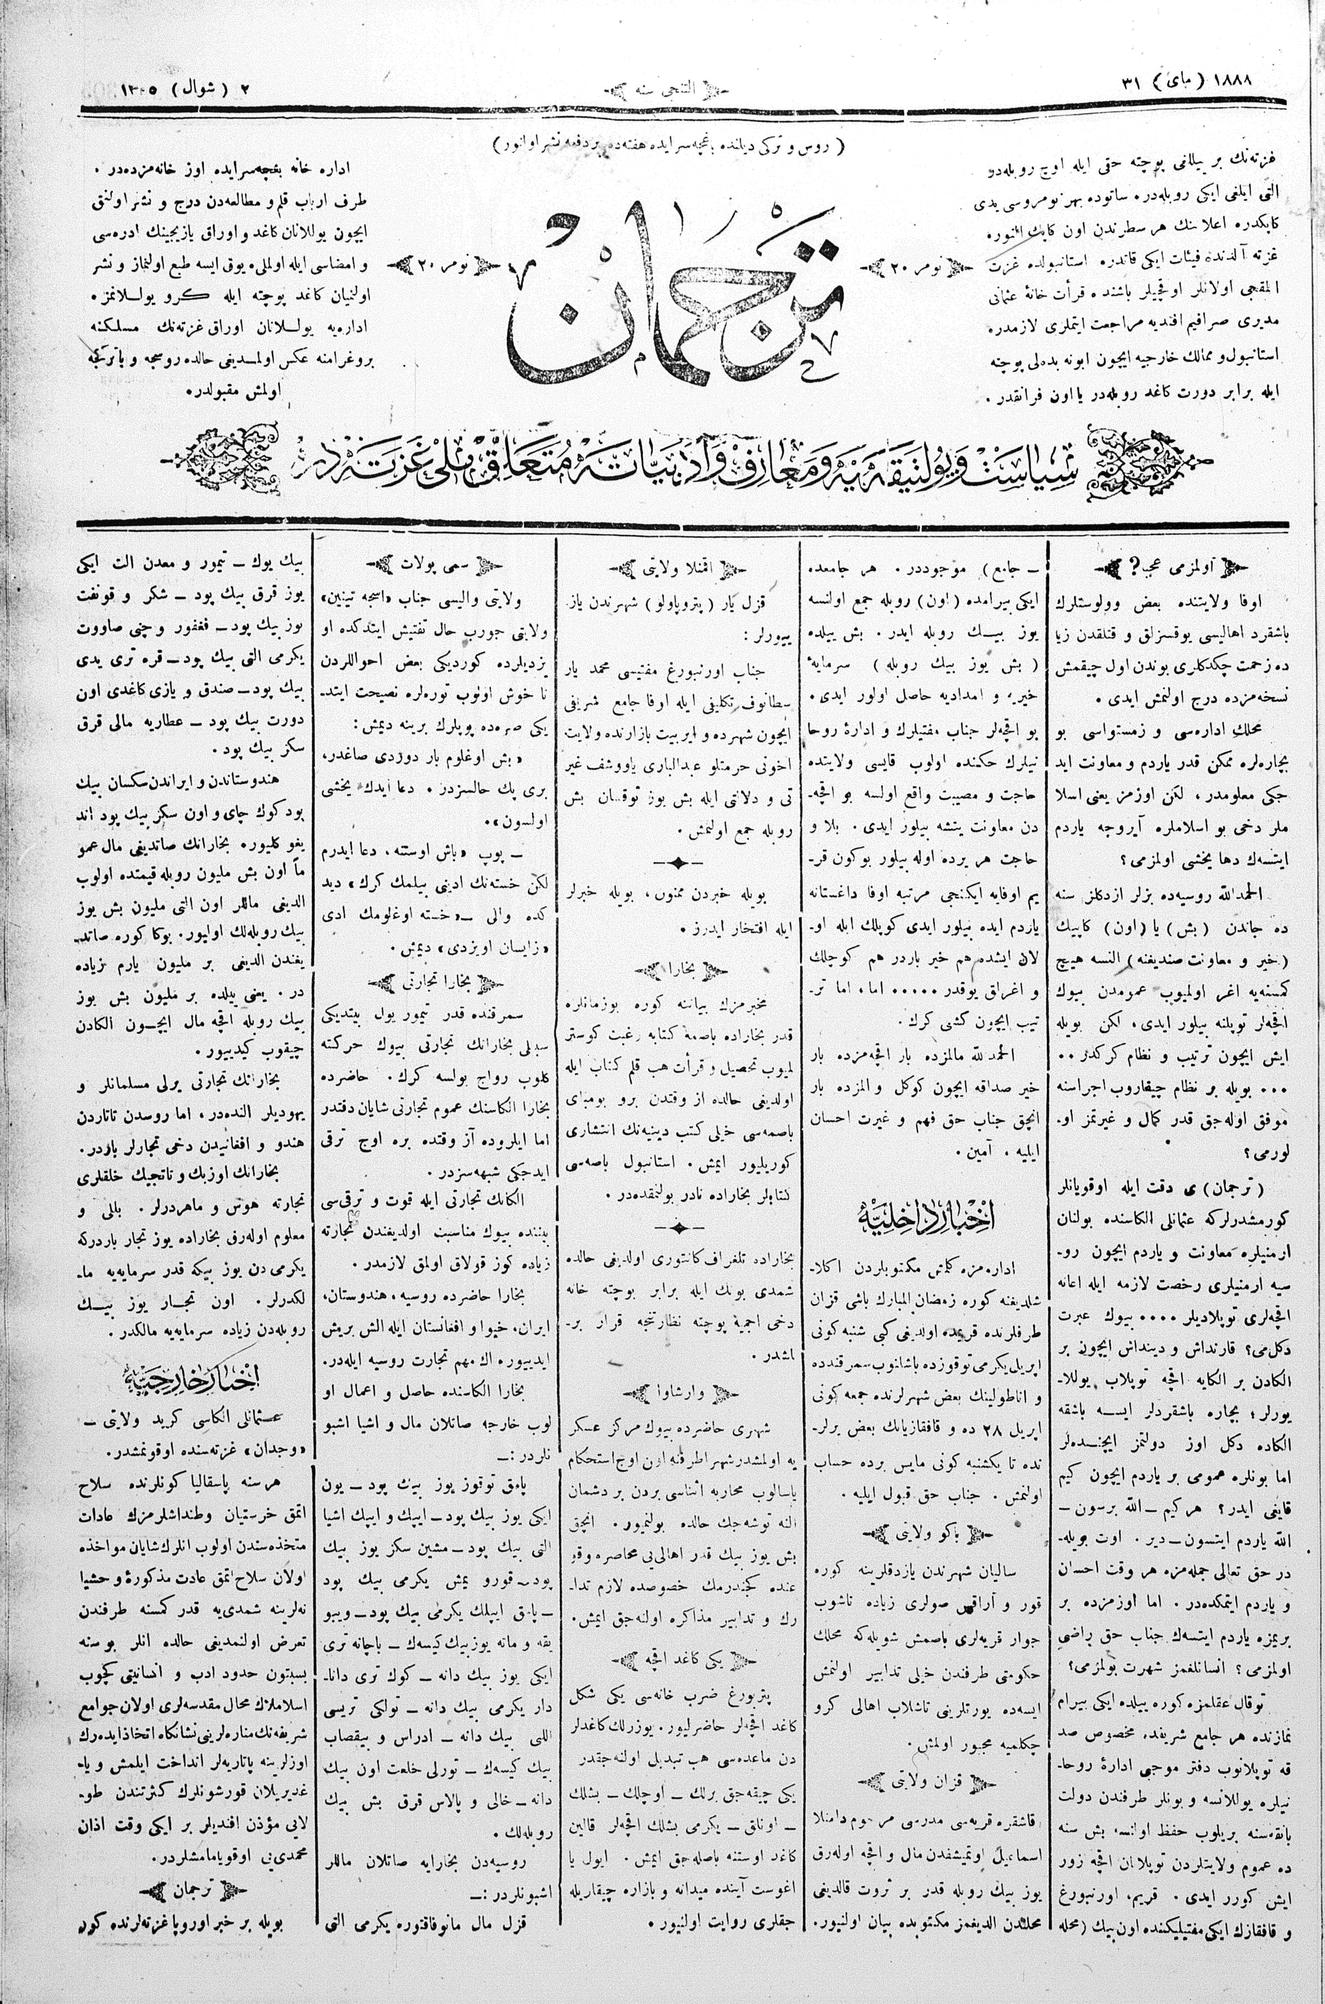 ١٨٨٨ (مای) ٣١
التنجی سنه
٢ (شوال) ١٣٠٥
(روس و ترکی دیلنده بغچه‌سرایده هفته‌ده بر دفعه نشر اولنور)
غزته‌نك بر ییللغی پوچته حقی ایله اوچ روبله‌در
التی ایلغی ایکی روبله‌در. ساتوده بهر نومروسی یدی
کاپکدره اعلانك هر سطرندن اون کاپك النور.
غزته آلدنده فیئات ایکی قاتدره استانبولده غزت
المقجی اولانلر اوقجیلر باشنده قرأت خانۀ عثمانی
مدیری صرافیم افندیه مراجعت ایتملری لازمدره
استانبول و ممالك خارجیه ایچون ابونه بدلی پوچته
ایله برابر دورت کاغد روبله‌در یا اون فرانقدر.
نومر ٢٠
ترجمان
نومر ٢٠
اداره خانه بغچه‌سرایده اوز خانه‌مزده‌در.
طرف ارباب قلم و مطالعه‌دن درج و نشر اولنتی
ایچون یوللانان کاغد و اوراق یازیجینك ادره‌سی
و امضاسی ایله اولملی. یوق ایسه طبع اولنماز و نشر
اولنمیان کاغد پوچته ایله کرو یوللانمز.
اداره‌یه یوللانان اوراق غزته‌نك مسلکنه
بروغرامنه عکس اولمدیغی حالده روسجه و یا ترکجه
اولمش مقبولدر.
سیاست و پولتیقه‌یه و معارف و ادبیاته متعلق ملی غزته‌در
اولمزمی عجب؟
اوفا ولایتنده بعض وولوستلرك
باشقرد اهالیسی یوقسزلق و قتلقدن زیا
ده زحمت چکدکلری بوندن اول چیقمش
نسخه‌مزده درج اولنمش ایدی.
محلك اداره‌سی و زمستواسی بو
بیچاره‌لره ممکن قدر یاردم و معاونت اید
جکی معلومدر. لکن اوزمز یعنی اسلا
ملر دخی بو اسلاملره آیروجه یاردم
ایتسه‌ك دها یخشی اولمزمی؟
الحمدلله روسیه‌ده بزلر ازدکلز سنه
ده جاندن (بش) یا (اون) کاپیك
(خیر و معاونت صندیغنه) النسه هیچ
کمسنه‌یه اغر اولمیوب عمومدن بیوك
اقچه‌لر توپلنه بیلور ایدی. لکن بویله
ایش ایچون ترتیب و نظام کرکدر..
... بویله بر نظام چیقاروب اجراسنه
موفق اوله‌جق قدر کمال و غیرتمز او.
لورمی؟
(ترجمان) ی دقت ایله اوقویانلر
کورمشدرلرکه عثمانلی الکاسنده بولنان
ارمنیلره معاونت و یاردم ایچون رو-
سیه ارمنیلری رخصت لازمه ایله اعانه
اقچه‌لری توپلادیلر .... بیوك عبرت
دکلمی؟ قارنداش و دینداش ایچون بر
الکادن بر الکایه اقچه توپلاب یوللا-
یورلر؛ بیچاره باشقردلر ایسه باشقه
الکاده دکل اوز دولتمز ایچنده‌لر
اما بونلره عمومی بر یاردم ایچون کیم
قایغی ایدر؟ هرکیم – الله برسون –
الله یاردم ایتسون – دیر. اوت بویله-
در حق تعالی جمله‌مزه هر وقت احسان
و یاردم ایتمکده‌در. اما اوزمزده بر
بریمزه یاردم ایتسه‌ك جناب حق راضی
اولمزمی؟ انسانلغمز شهرت بولمزمی؟
توقال عقلمزه کوره ییلده ایکی بیرام
نمازنده هر جامع شریفده مخصوص صد
قه توپلانوب دفتر موجبی ادارۀ روحا-
نیلره یوللانسه و بونلر طرفندن دولت
بانقه‌سنه بریلوب حفظ اولنسه بش سنه
ده عموم ولایتلردن توپلانان اقچه زور
ایش کورر ایدی. قریم، اورنبورغ
و قافقازك ایکی مفتیلیکنده اون بیك (محله
– جامع) موجوددر. هر جامعده
ایکی بیرامده (اون) روبله جمع اولنسه
یوز بیك روبله ایدر. بش ییلده
(بش یوز بیك روبله) سرمایۀ
خیر، و امدادیه حاصل اولور ایدی.
بو اقچه‌لر جناب مفتیلرك و ادارۀ روحا
نیلرك حکمنده اولوب قایسی ولایتنده
حاجت و مصیبت واقع اولسه بو اقچه-
دن معاونت یتشه بیلور ایدی. بلا و
حاجت هر یرده اوله بیلور بوکون قر-
یم اوفایه ایکنجی مرتبه اوفا داغستانه
یاردم ایده بیلور ایدی کوپلك ایله او-
لان ایشده هم خیر باردر هم کوچلك
و اغراق یوقدر ..... اما، اما تر-
تیب ایچون کشی کرك.
الحمدلله مالمزده بار اقچه‌مزده بار
خیر صداقه ایچون کوکل و المزده بار
انجق جناب حق فهم و غیرت احسان
ایلیه. آمین.
اخبار داخلیه
اداره‌مزه کلمش مکتوبلردن اکلا-
شلدیغنه کوره رمضان المبارك باشی قزان
طرفلرنده قریمده اولدیغی کبی شنبه کونی
اپریل یکرمی توقوزده باشلانوب سمرقندده
و اناطولینك بعض شهرلرنده جمعه کونی
اپریل ٢٨ ده و قافقازیانك بعض یرلر-
نده تا یکشنبه کونی مایس برده حساب
اولنمش. جناب حق قبول ایلیه.
باکو ولایتی
سالیان شهرندن یازدقلرینه کوره
قور و اراقس صولری زیاده تاشوب
جوار قریه‌لری باصمش شویله‌که محلك
حکومتی طرفندن خیلی تدابیر اولنمش
ایسه‌ده یورتلرینی تاشلاب اهالی کرو
چکلمیه مجبور اولمش.
قزان ولایتی
قاشقره قریه‌سی مدرسی مرحوم داملا
اسماعیل اوتیمیشفدن مال و اقچه اوله‌رق
یوز بیك روبله قدر بر ثروت قالدیغی
محلندن الدیغمز مکتوبده بیان اولنیور.
اقمنلا ولایتی
قزل یار (پتروپاولو) شهرندن یاز-
ییورلر:
جناب اورنبورغ مفتیسی محمد یار
سطانوف تکلیفی ایله اوفا جامع شریفی
ایچون شهرده و ایربیت بازارنده ولایت
اخونی حرمتلو عبدالباری یاووشف غیر
تی و دلالتی ایله بش یوز توقسان بش
روبله جمع اولنمش.
بویله خبردن ممنون، بویله خبرلر
ایله افتخار ایدرز.
بخارا
مخبرمزك بیاننه کوره بوزمانلره
قدر بخاراده باصمه کتابه رغبت کوستر
لمیوب تحصیل و قرأت هب قلم کتاب ایله
اولدیغی حالده از وقتدن برو بومبای
باصمه‌سی خیلی کتب دینیه‌نك انتشاری
کوریلیور ایمش. استانبول باصمه‌سی
کتابلر بخاراده نادر بولنمقده‌در.
بخاراده تلغراف کانتوری اولدیغی حالده
شمدی بونك ایله برابر پوچته خانه
دخی اجمیۀ پوچته نظارتنجه قرار بر-
لمشدر.
وارشاوا
شهری حاضرده بیوك مرکز عسکر
یه اولمشدر شهر اطرفنه اون اوچ استحکام
یاسالوب محاربه اثناسی بردن بر دشمان
النه توشه‌جك حالده بولنمیور. انجق
بش یوز بیك قدر اهالی‌یی محاصره وقو
عنده کچندرمك خصوصده لازم تدا-
رك و تدابیر مذاکره اولنه‌جق ایمش.
یکی کاغد اقچه
پتربورغ ضرب خانه‌سی یکی شکل
کاغد اقچه‌لر حاضرلیور. یوزرلك کاغدلر
دن ماعده‌سی هب تبدیل اولنه‌جقدر
یکی چیقه‌جق برلك – اوچلك – بشلك
– اونلق – یکرمی بشلك اقچه‌لر قالین
کاغد اوستنه باصله‌جق ایمش. ایول یا
اغوست آینده میدانه و بازاره چیقاریله
جقلری روایت اولنیور.
سمی پولات
ولایتی والیسی جناب «اسچه تینین»
ولایتی جوروب حال تفتیش ایتدکده او
یزدیلرده کوردیکی بعض احواللردن
نا خوش اولوب توره‌لره نصیحت ایتد-
یکی صره‌ده پوپلرك برینه دیمش:
«بش اوغلوم بار دوزدی صاغدر،
بری پك حالسزدر. دعا ایدك یخشی
اولسون».
– پوپ «باش اوستنه، دعا ایدرم
لکن خسته‌نك ادینی بیلمك کرك» دید
کده والی – «خسته اوغلومك ادی
«زایسان اویزدی» دیمش.
بخارا تجارتی
سمرقنده قدر تیمور یول بیتدیکی
سبلی بخارانك تجارتی بیوك حرکته
کلوب رواج بولسه کرك. حاضرده
بخارا الکاسنك عموم تجارتی شایان دقتدر
اما ایلروده آز وقتده بره اوچ ترقی
ایدجکی شبهه‌سزدر.
الکانك تجارتی ایله قوت و ترقی‌سی
بیننده بیوك مناسبت اولدیغندن تجارته
زیاده کوز قولاق اولمق لازمدر.
بخارا حاضرده روسیه، هندوستان،
ایران، خیوا و افغانستان ایله الش بریش
ایدییور. اك مهم تجارت روسیه ایله‌در.
بخارا الکاسنده حاصل و اعمال او
لوب خارجه صاتلان مال و اشیا اشبو
نلردر:–
پامق توقوز یوز بیك پود – یون
ایکی یوز بیك پود – ایپك و ایپك اشیا
التی بیك پود – مشین سکز یوز بیك
پود – قورو یمش یکرمی بیك پود
– پامق ایپلك یکرمی بیك پود – ویبو
یقه و مانه یوز بیك کیسه‌ك – باچانه تری
ایکی یوز بیك دانه – کوك تری دانا-
دار یکرمی بیك دانه – تولکی تریسی
اللی بیك دانه – ادراس و بیقصاب
بیك کیسه‌ك – تورلی خلعت اون بیك
دانه – خالی و پالاس قرق بش بیك
روبله‌لك.
روسیه‌دن بخارایه صاتلان ماللر
اشبونلردر:–
قزل مال مانوفاقتوره یکرمی التی
بیك یوك – تیمور و معدن الت ایکی
یوز قرق بیك پود – شکر و قونفت
یوز بیك پود – فغفور و چنی صاووت
یکرمی التی بیك پود – قره تری یدی
بیك پود – صندق و یازی کاغدی اون
دورت بیك پود – عطاریه مالی قرق
سکز بیك پود.
هندوستاندن و ایراندن سکسان بیك
پود کوك چای و اون سکز بیك پود اند
یغو کلیور. بخارانك صاتدیغی مال عمو
ماً اون بش ملیون روبله قیمتده اولوب
الدیغی ماللر اون التی ملیون بش یوز
بیك روبله‌لك اولیور. بوکا کوره صاتد-
یغندن الدیغی بر ملیون یارم زیاده
در. یعنی ییلده بر ملیون بش یوز
بیك روبله اقچه مال ایچون الکادن
چیقوب کیدییور.
بخارانك تجارتی یرلی مسلمانلر و
یهودیلر النده‌در، اما روسدن تاتاردن
هندو و افغانیدن دخی تجارلر باردر.
بخارانك اوزبك و تاجیك خلقلری
تجارته هوش و ماهردرلر. بللی و
معلوم اوله‌رق بخاراده یوز تجار باردرکه
یکرمی دن یوز بیکه قدر سرمایه‌یه ما-
لکدرلر. اون تجار یوز بیك
روبله‌دن زیاده سرمایه‌یه مالکدر.
اخبار خارجیه
عثمانلی الکاسی کرید ولایتی –
«وجدان» غزته‌سنده اوقونمشدر.
هر سنه پاسقالیا کونلرنده سلاح
اتمق خرستیان وطنداشلرمزك عادات
متخذه‌سندن اولوب انلرك شایان مواخذه
اولان سلاح اتمق عادت مذکورۀ وحشیا
نه‌لرینه شمدی‌یه قدر کمسنه طرفندن
تعرض اولنمدیغی حالده انلر بو سنه
بسبتون حدود ادب و انسانیتی کچوب
اسلاملرك محال مقدسه‌لری اولان جوامع
شریفه‌نك مناره‌لرینی نشانکاه اتخاذ ایده‌رك
اوزلرینه پاتاریه‌لر انداخت ایلمش و یا-
غدیریلان قورشونلرك کثرتندن طو-
لایی مؤذن افندیلر بر ایکی وقت اذان
محمدی‌یی اوقویامامشلردر.
ترجمان
بویله بر خبر اوروپا غزته‌لرنده کون